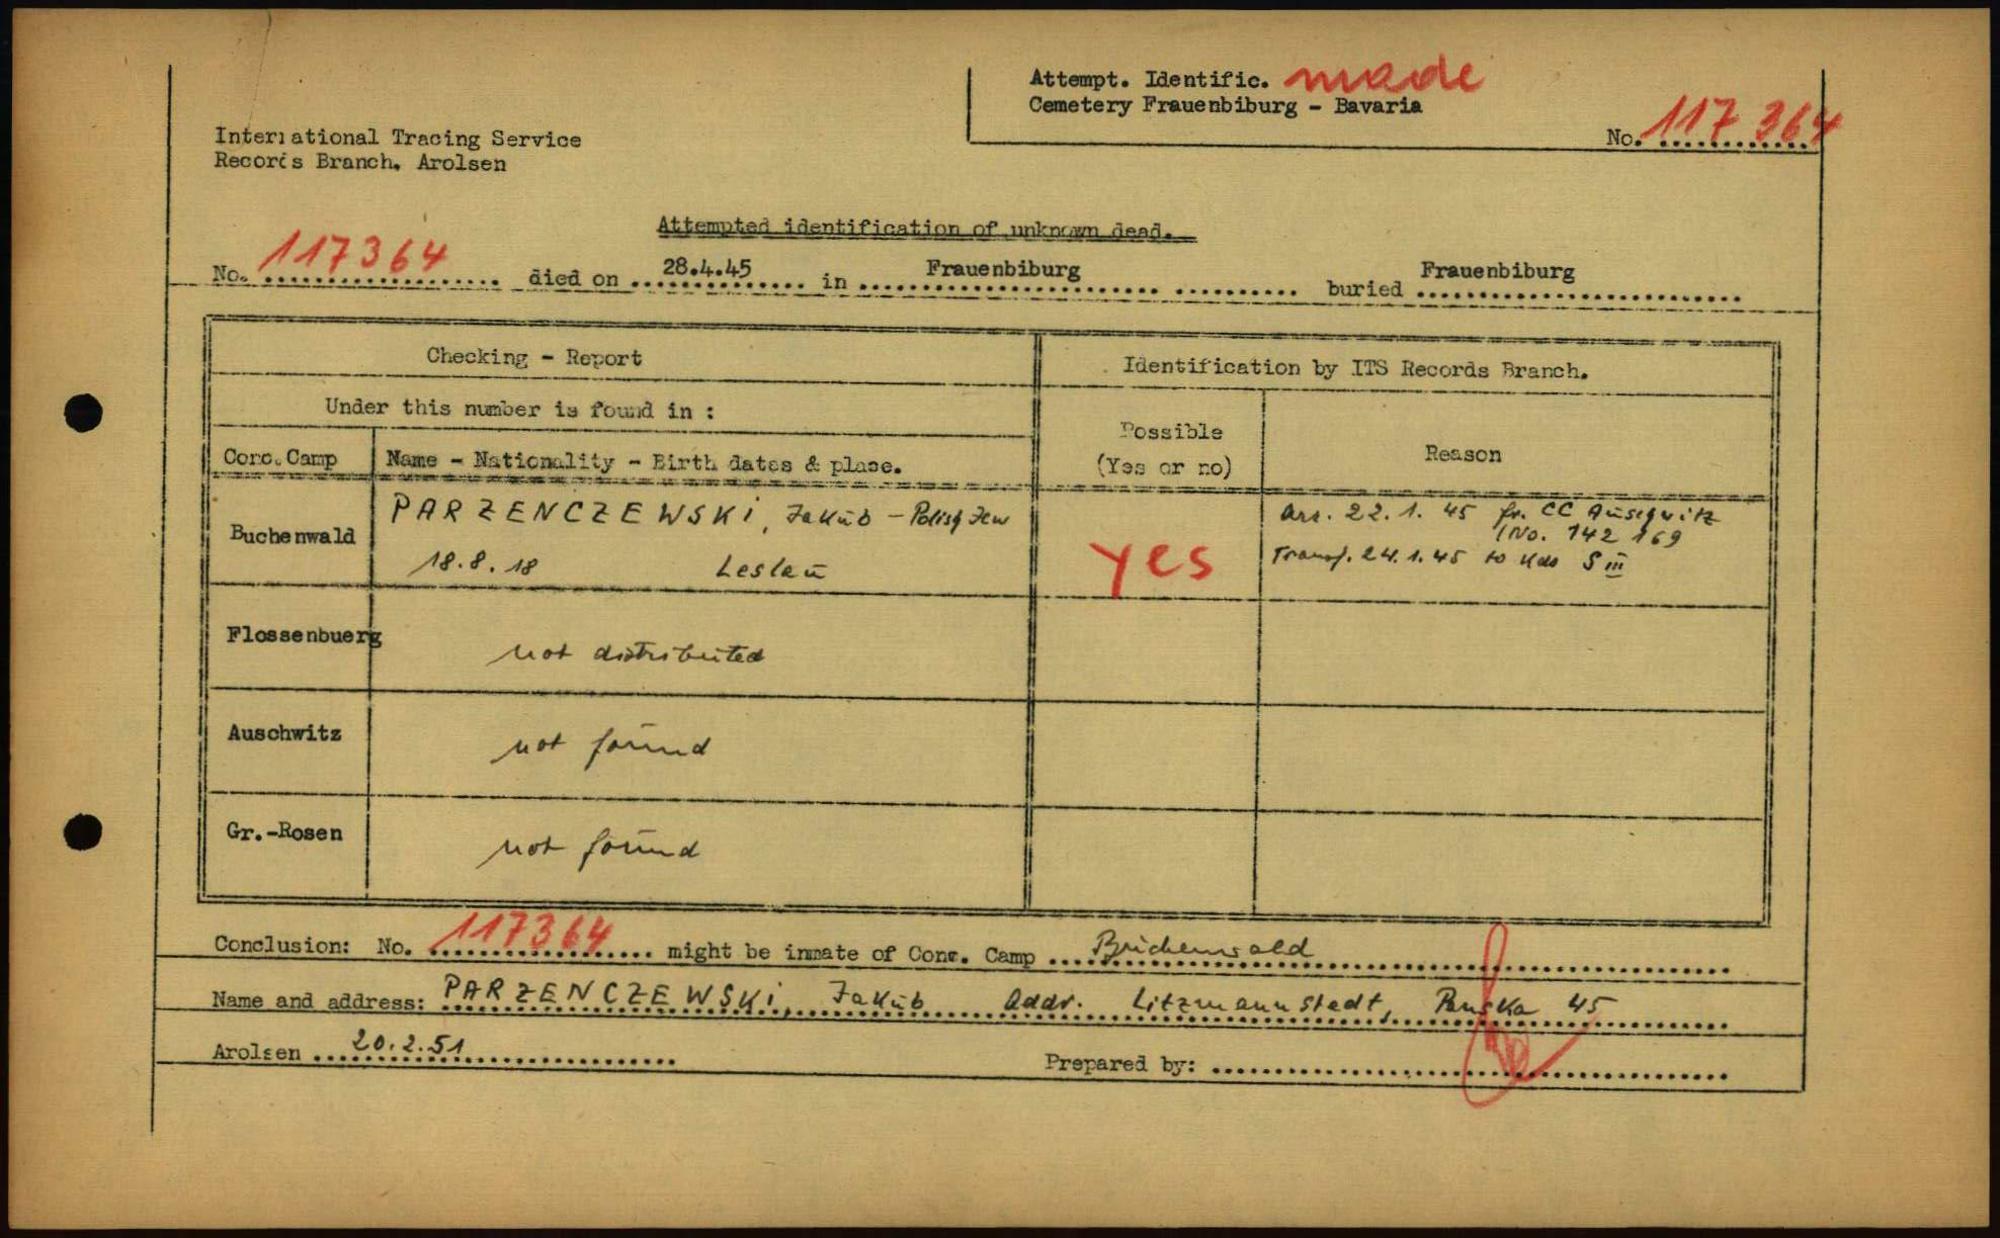 Attempt. Identific. made
Cemetery Frauenbiburg - Bavaria
No. 117 364
International Tracing Service
Records Branch, Arolsen
Attempted identification of unknown dead.
No. 117364 died on 28.4.45 in Frauenbiburg buried Frauenbiburg
Checking - Report
Identification by ITS Records Branch.
Under this number is found in :
Possible
(Yes or no)
Reason
Conc. Camp
Name - Nationality - Birth dates & place.
Buchenwald
PARZENCZEWSKI, Jakub - Polish Jew
18.8.18 Leslau
yes
arr. 22.1.45 fr. CC Auschwitz
(No. 142 169
Transf. 24.1.45 to Kdo S III
Flossenbuerg
not distributed
Auschwitz
not found
Gr.-Rosen
not found
Conclusion: No. 117364 might be inmate of Conc. Camp Buchenwald
Name and address: PARZENCZEWSKI, Jakub Addr. Litzmannstadt, Panska 45
Arolsen 20.2.51
Prepared by: